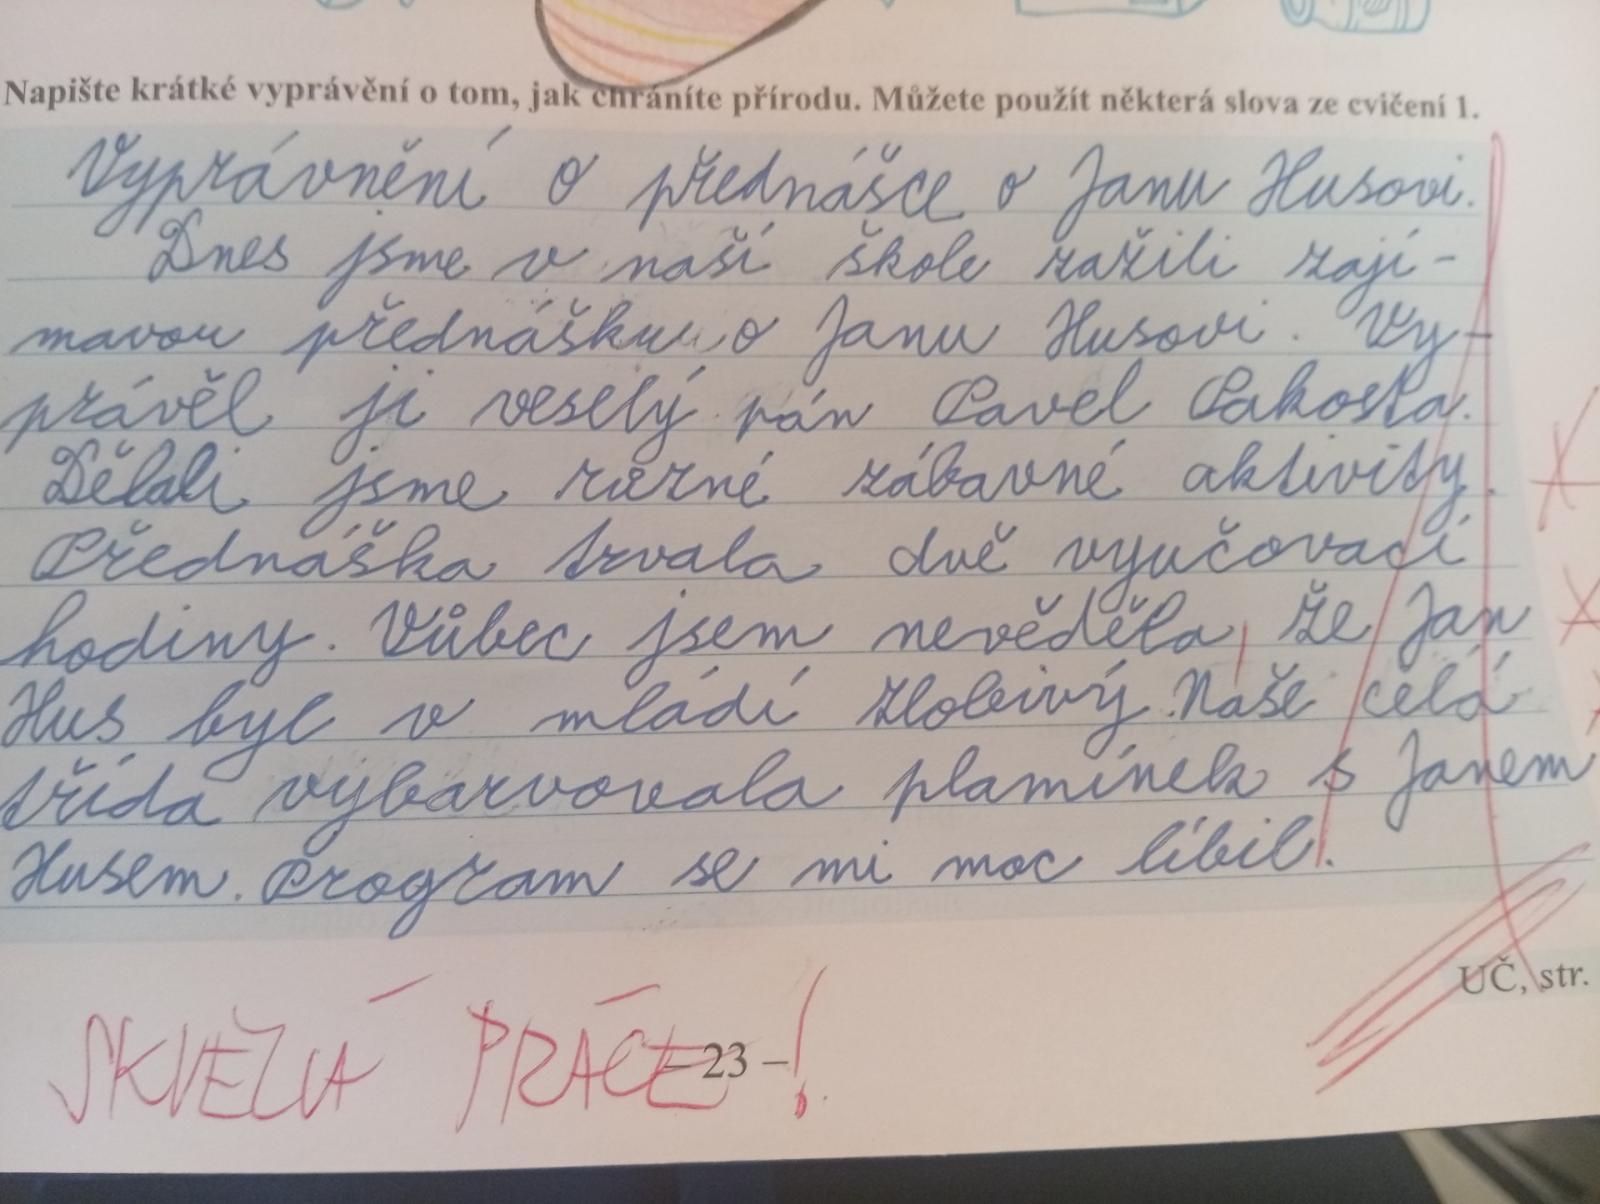 Napište krátké vyprávění o tom, jak chráníte přírodu. Můžete použít některá slova ze cvičení 1.
Vyprávnění o přednášce o Janu Husovi.
Dnes jsme v naší škole zažili zají-
mavou přednášku o Janu Husovi. Vy-
právěl ji veselý pán Pavel Pakosta.
Dělali jsme různé zábavné aktivity.
Přednáška trvala dvě vyučovací
hodiny. Vůbec jsem nevěděla, že Jan
Hus byl v mládí zlobivý. Naše celá
třída vybarvovala plamínek s Janem
Husem. Program se mi moc líbil!.
UČ, str.
SKVĚLÁ PRÁCE!
– 23 –